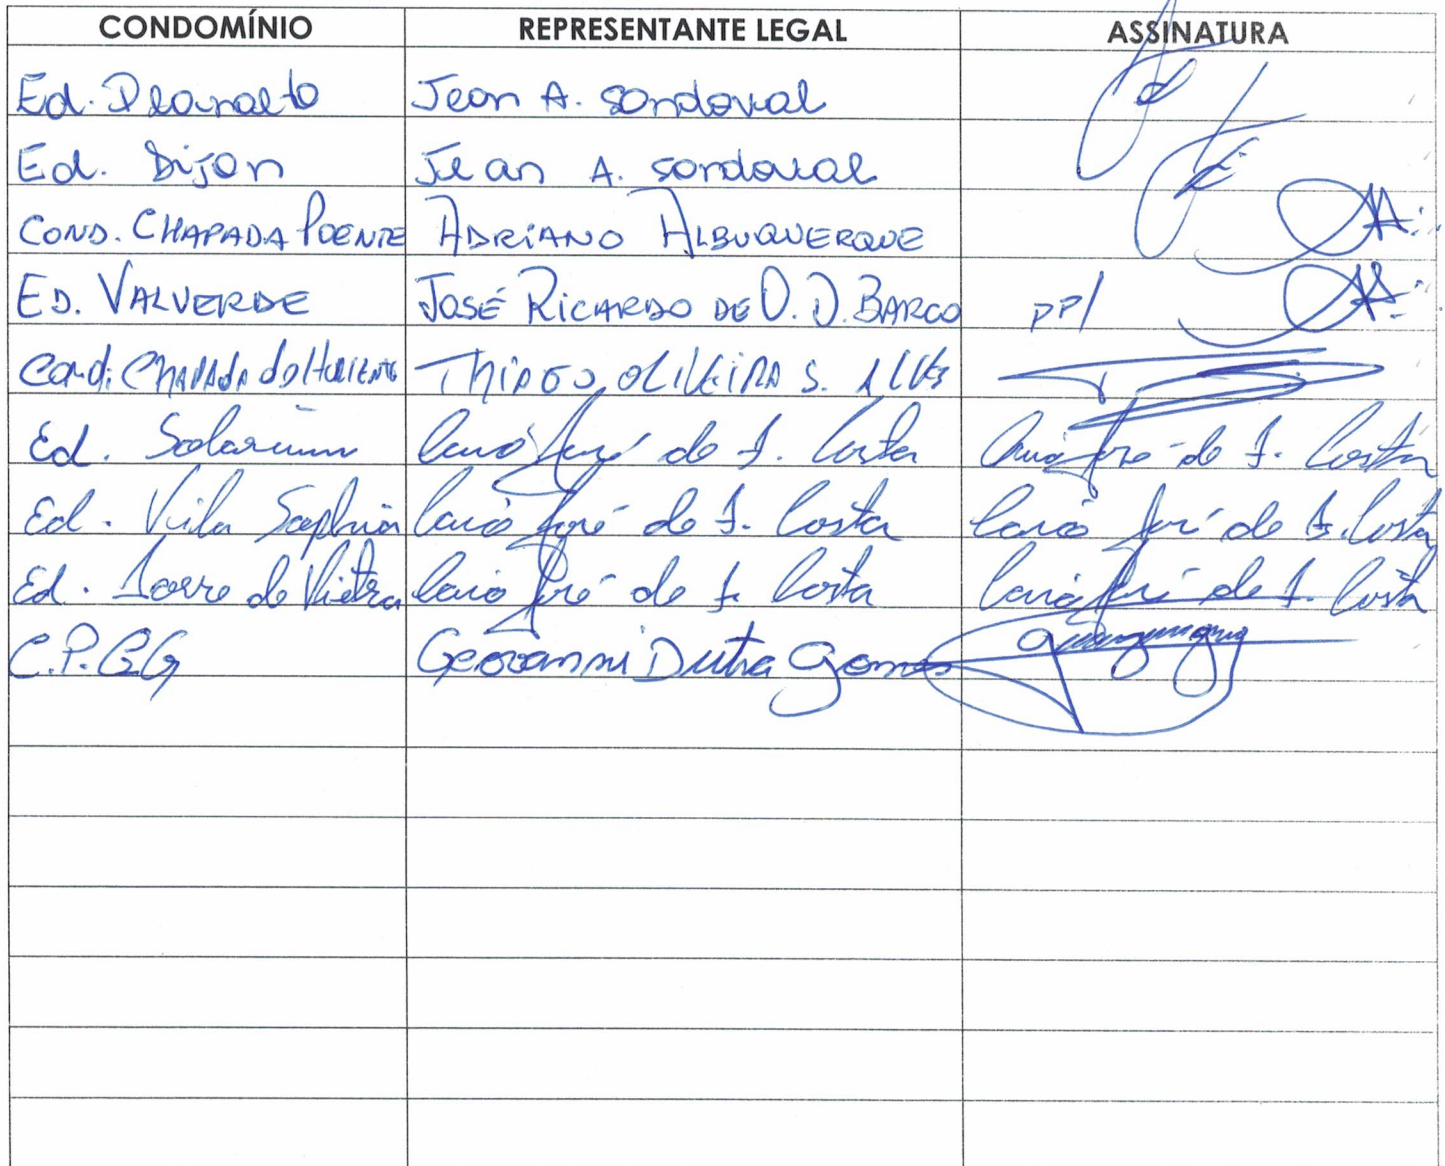 CONDOMÍNIO REPRESENTANTE LEGAL ASSINATURA
Ed. Planalto Jean A. Sandoval
Ed. Dijon Jean A. Sandoval
COND. CHAPADA POENTE ADRIANO ALBUQUERQUE
ED. VALVERDE JOSÉ RICARDO DE O. D. BARCO PP/
Cond. CHAPADA do THIAGO OLIVEIRA S. ALVES
Ed. Solarium Caio José de S. Costa Caio José de S. Costa
Ed. Vila Saphira Caio José de S. Costa Caio José de S. Costa
Ed. Torre de Pietra Caio José de S. Costa Caio José de S. Costa
C.P.GG Geovanni Dutra Gomes